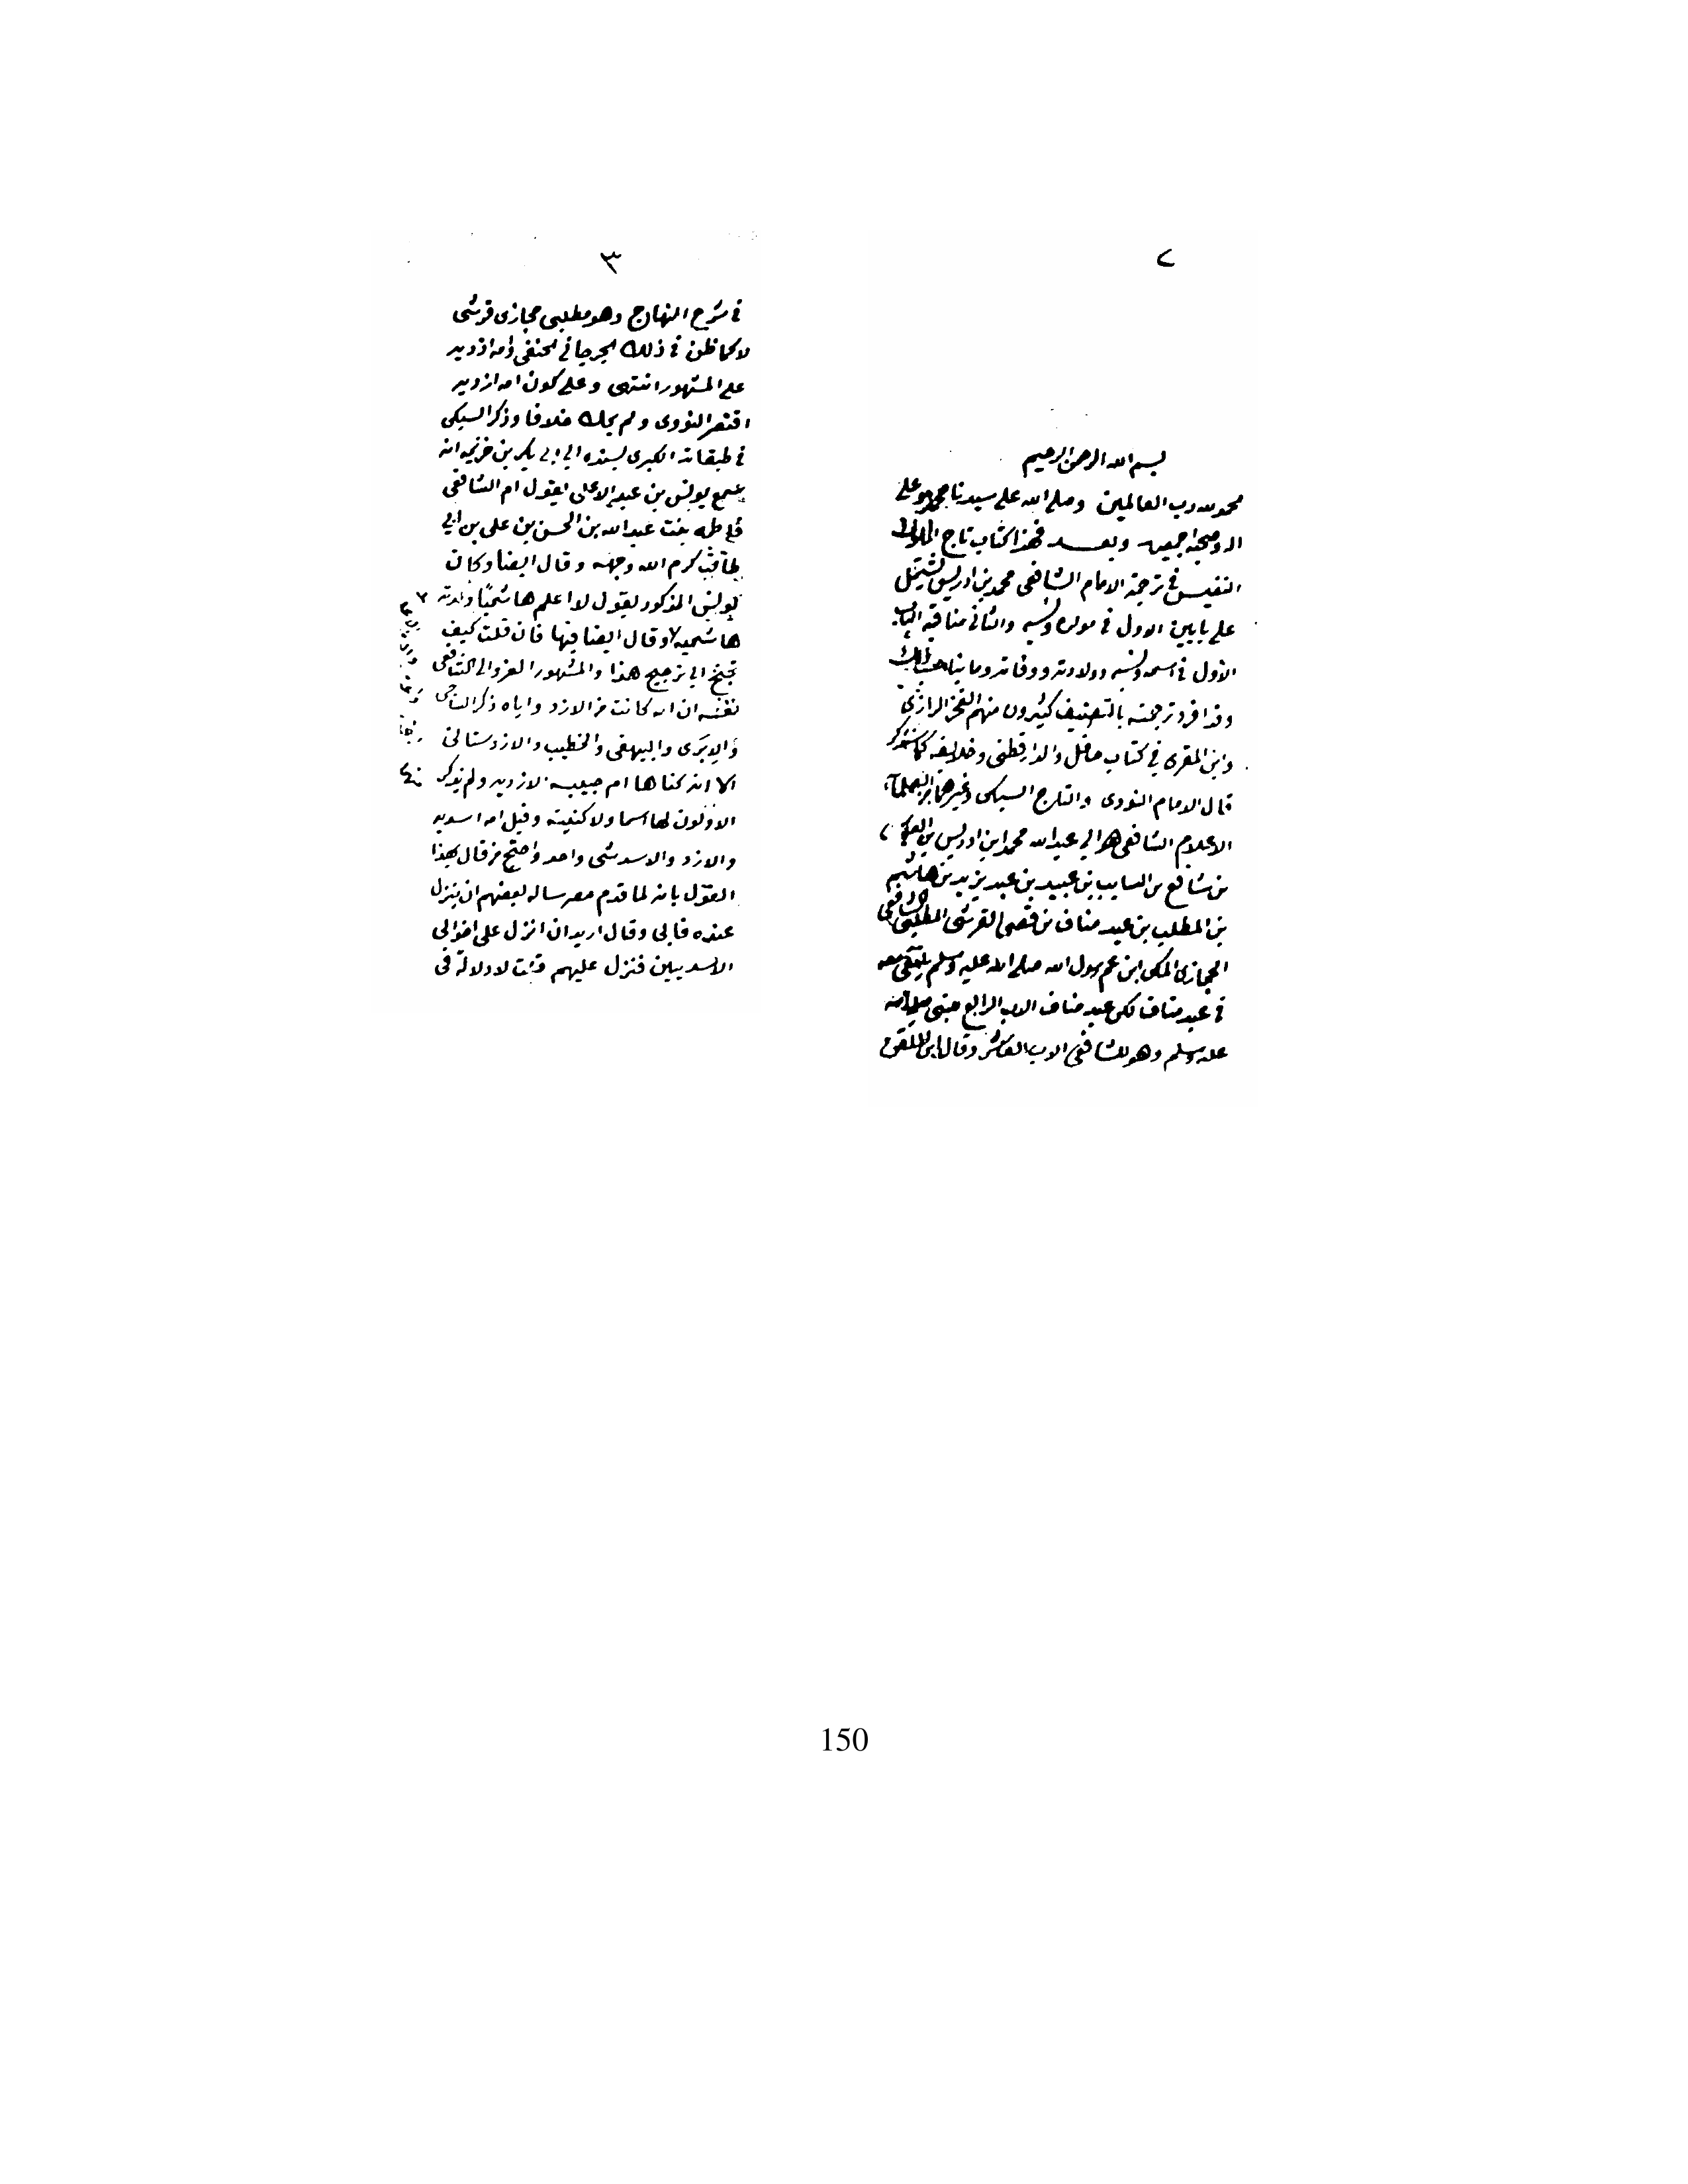 ٢
بسم الله الرحمن الرحيم
محمد لله رب العالمين وصلى الله على سيدنا محمد وعلى
اله وصحبه اجمعين وبعد فهذا كتاب تاج
النفيس في ترجمة الامام الشافعي محمد بن ادريس يشتمل
على بابين الاول في مولده ونسبه والثاني مناقبه الباب
الاول في اسمه ونسبه وولادته ووفاته وما يناسب ذلك
وقد افرد ترجمته بالتصنيف كثيرون منهم الفخر الرازي
وابن المقرى في كتاب حافل والدارقطني وخلايق كما سنذكر
قال الامام النووى والتاج السبكى وغيرهما من العلماء
الاعلام الشافعي هو ابي عبد الله محمد ابن ادريس بن العباس
بن شافع بن السايب بن عبيد بن عبد يزيد بن هاشم
بن المطلب بن عبد مناف بن قصى القرشى المطلبى الشافعى
الحجازى المكى ابن عم رسول الله صلى الله عليه وسلم يلتقى معه
في عبد مناف لكن عبد مناف الاب الرابع صلى الله
عليه وسلم وهو للشافعى الاب العاشر وقال ابن الملقن
٣
في شرح المنهاج وهو مطلبى حجازى قرشى
في ذلك الجرجاني الحنفى وامه ازديه
على المشهور انتهى وعلى كون امه ازديه
اقتصر النووى ولم يحك خلافا وذكر السبكى
في طبقاته الكبرى بسنده الى ابى بكر بن خزيمه انه
سمع يونس بن عبد الاعلى يقول ام الشافعى
فاطمه بنت عبد الله بن الحسن بن على بن ابي
طالب كرم الله وجهه وقال ايضا وكان
يونس المذكور يقول لا اعلم هاشميًا ولدته
هاشميه الا وقال ايضا فيها فان قلت كيف
تجنح الى ترجيح هذا والمشهور المعزو الى الشافعى
نفسه ان امه كانت من الازد واياه ذكر الساجى
والابرى والبيهقى والخطيب والاردستانى
الا انه كناها ام حبيبه الازديه ولم يذكر
الاولون لها اسما ولا كنيته وقيل امه اسديه
والازد والاسد شى واحد واحتج من قال بهذا
القول بانه لما قدم مصر ساله بعضهم ان ينزل
عنده فابى وقال اريد ان انزل على اخوالى
الاسديين فنزل عليهم قلت لا دلالة فى
150